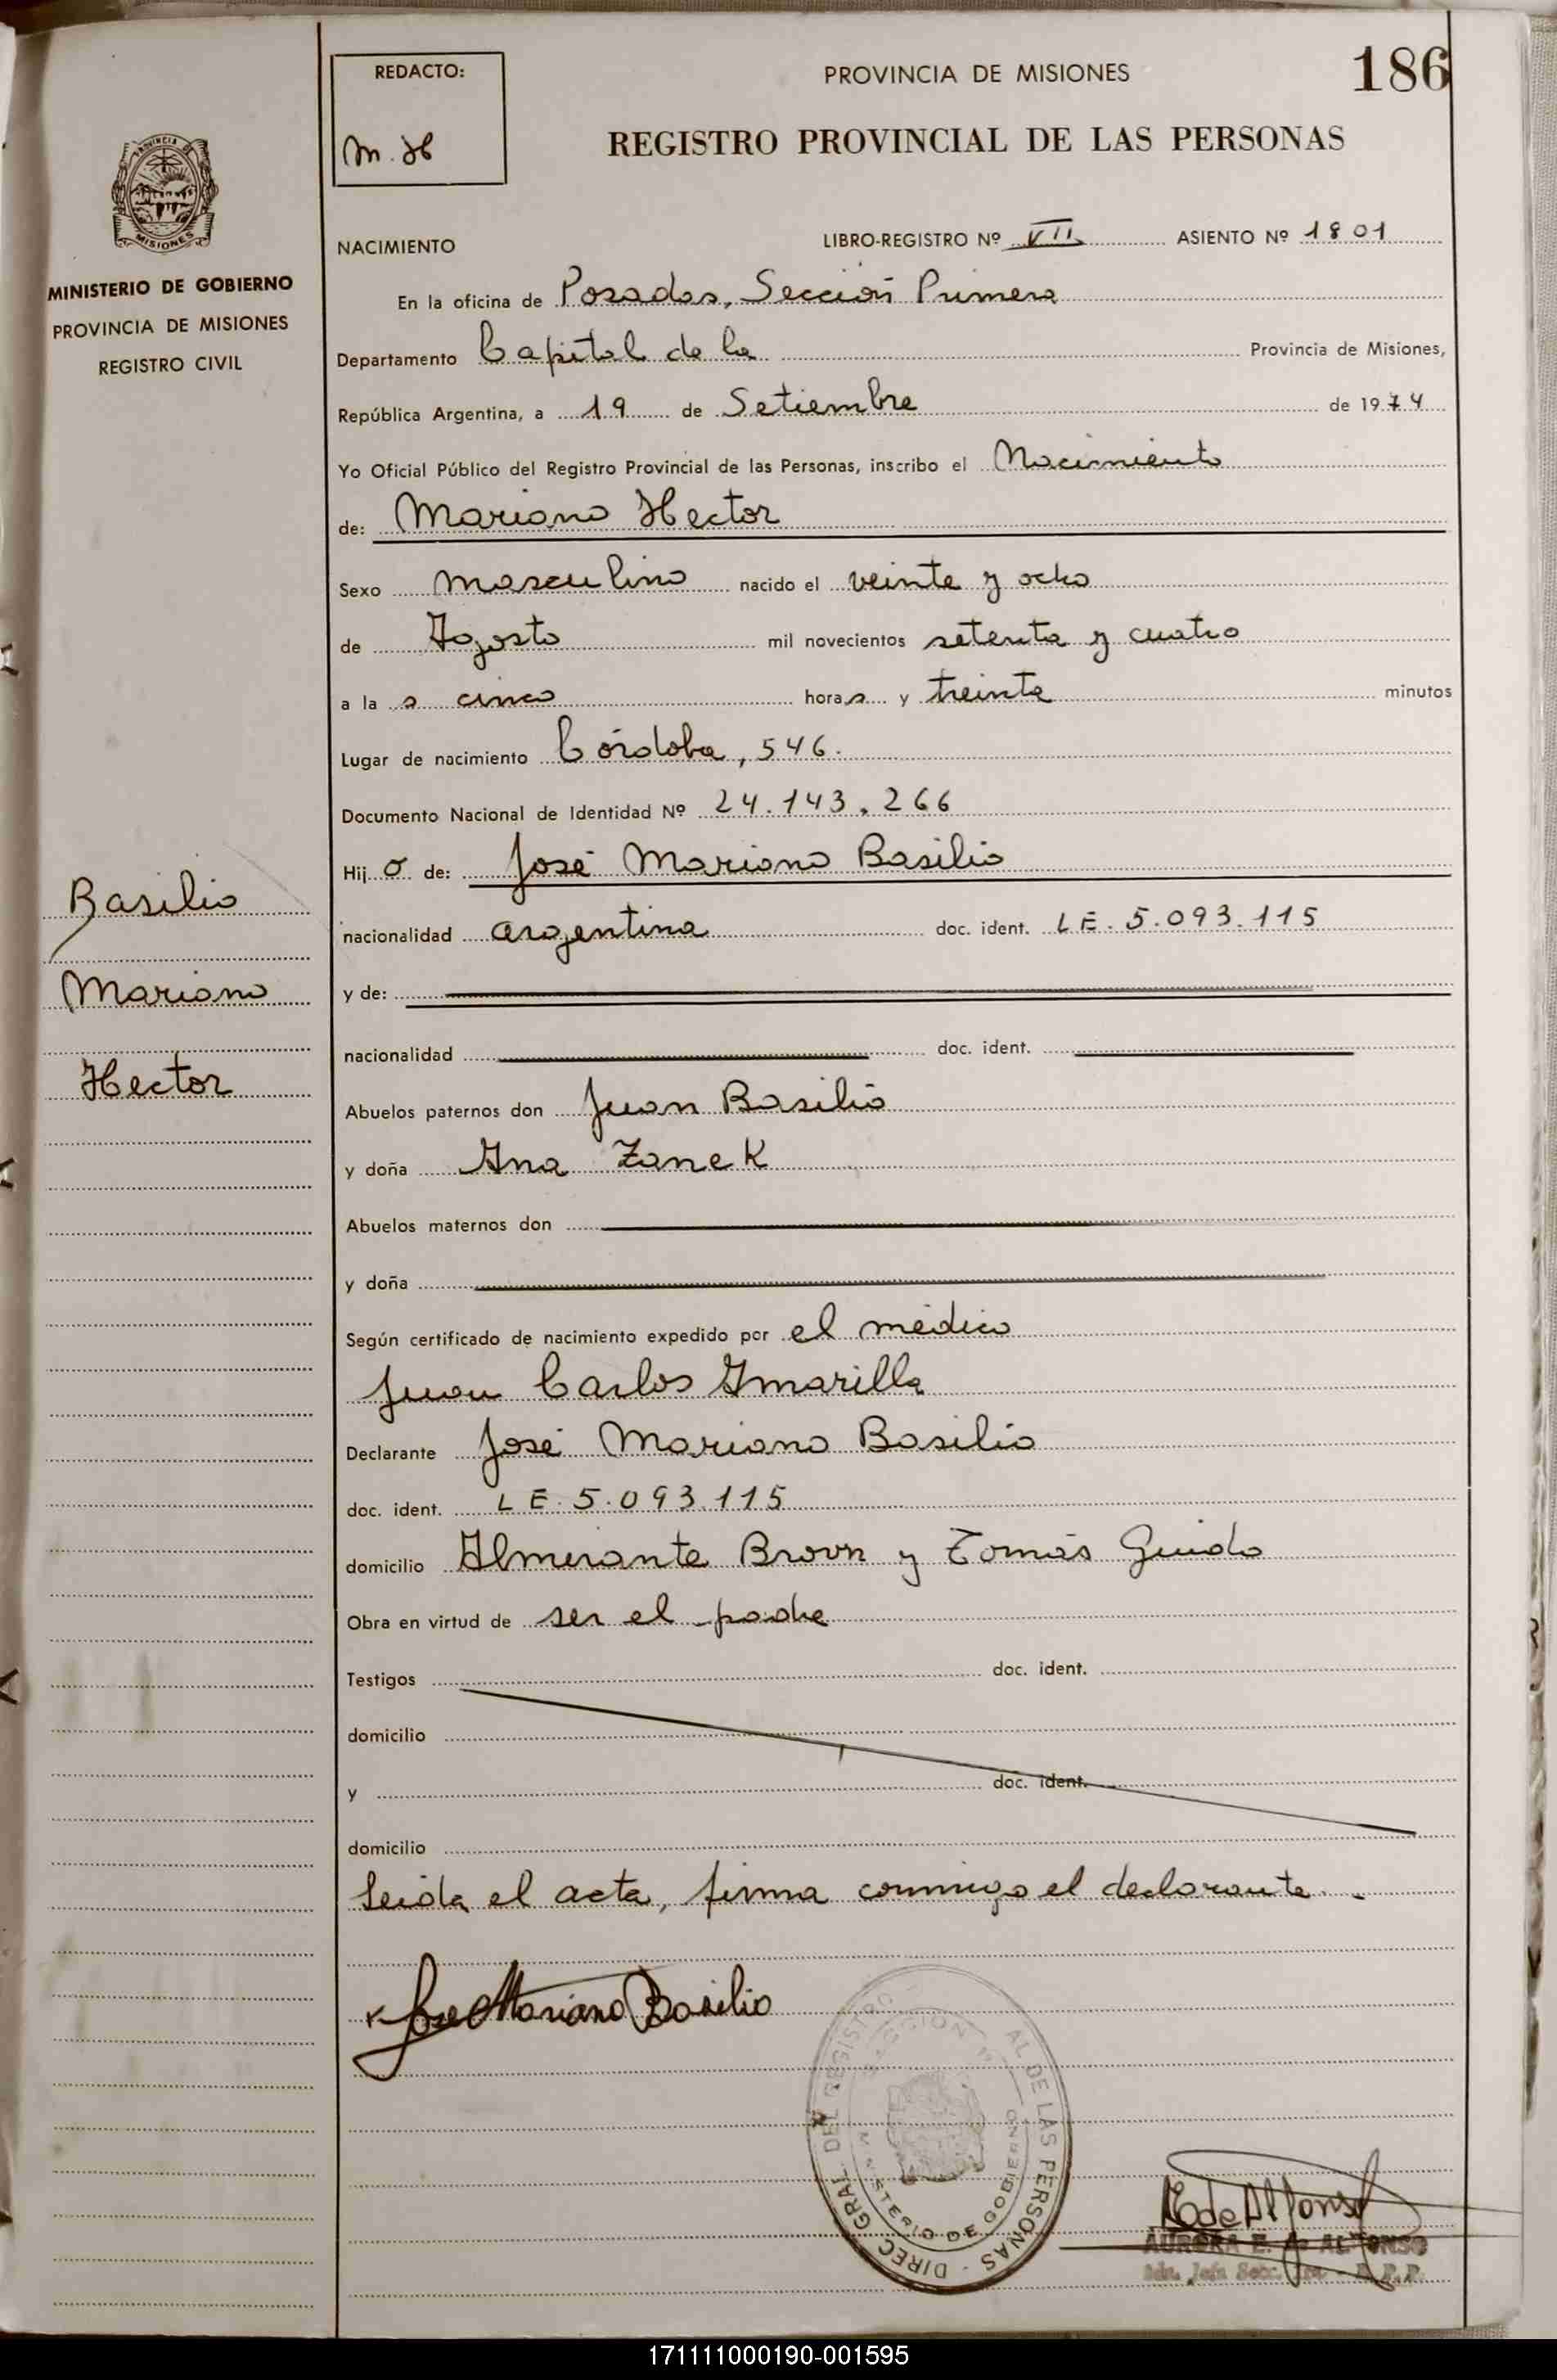 186
REDACTO:
M. H
PROVINCIA DE MISIONES
REGISTRO PROVINCIAL DE LAS PERSONAS
MISIONES
MINISTERIO DE GOBIERNO
PROVINCIA DE MISIONES
REGISTRO CIVIL
NACIMIENTO LIBRO-REGISTRO Nº VII ASIENTO Nº 1801
En la oficina de Posadas, Sección Primera
Departamento Capital de la Provincia de Misiones,
República Argentina, a 19 de Setiembre de 1974
Yo Oficial Público del Registro Provincial de las Personas, inscribo el Nacimiento
de: Mariano Hector
Sexo masculino nacido el veinte y ocho
de Agosto mil novecientos setenta y cuatro
a la s cinco horas y treinta minutos
Lugar de nacimiento Córdoba, 546.
Documento Nacional de Identidad Nº 24.143.266
Hijo de: José Mariano Basilio
nacionalidad argentina doc. ident. LE. 5.093.115
y de:
nacionalidad doc. ident.
Abuelos paternos don Juan Basilio
y doña Ana Zanek
Abuelos maternos don
y doña
Según certificado de nacimiento expedido por el médico
Juan Carlos Amarilla
Declarante José Mariano Basilio
doc. ident. LE. 5.093.115
domicilio Almirante Brown y Tomás Guido
Obra en virtud de ser el padre
Testigos doc. ident.
domicilio
y doc. ident.
domicilio
Leida el acta, firma conmigo el declarante.-
Basilio
Mariano
Hector
Jose Mariano Basilio
DIREC. GRAL. DEL REGISTRO AL DE LAS PERSONAS
SECCION 1ª
MINISTERIO DE GOBIERNO
E de Alfonso
AURORA E. de ALFONSO
171111000190-001595